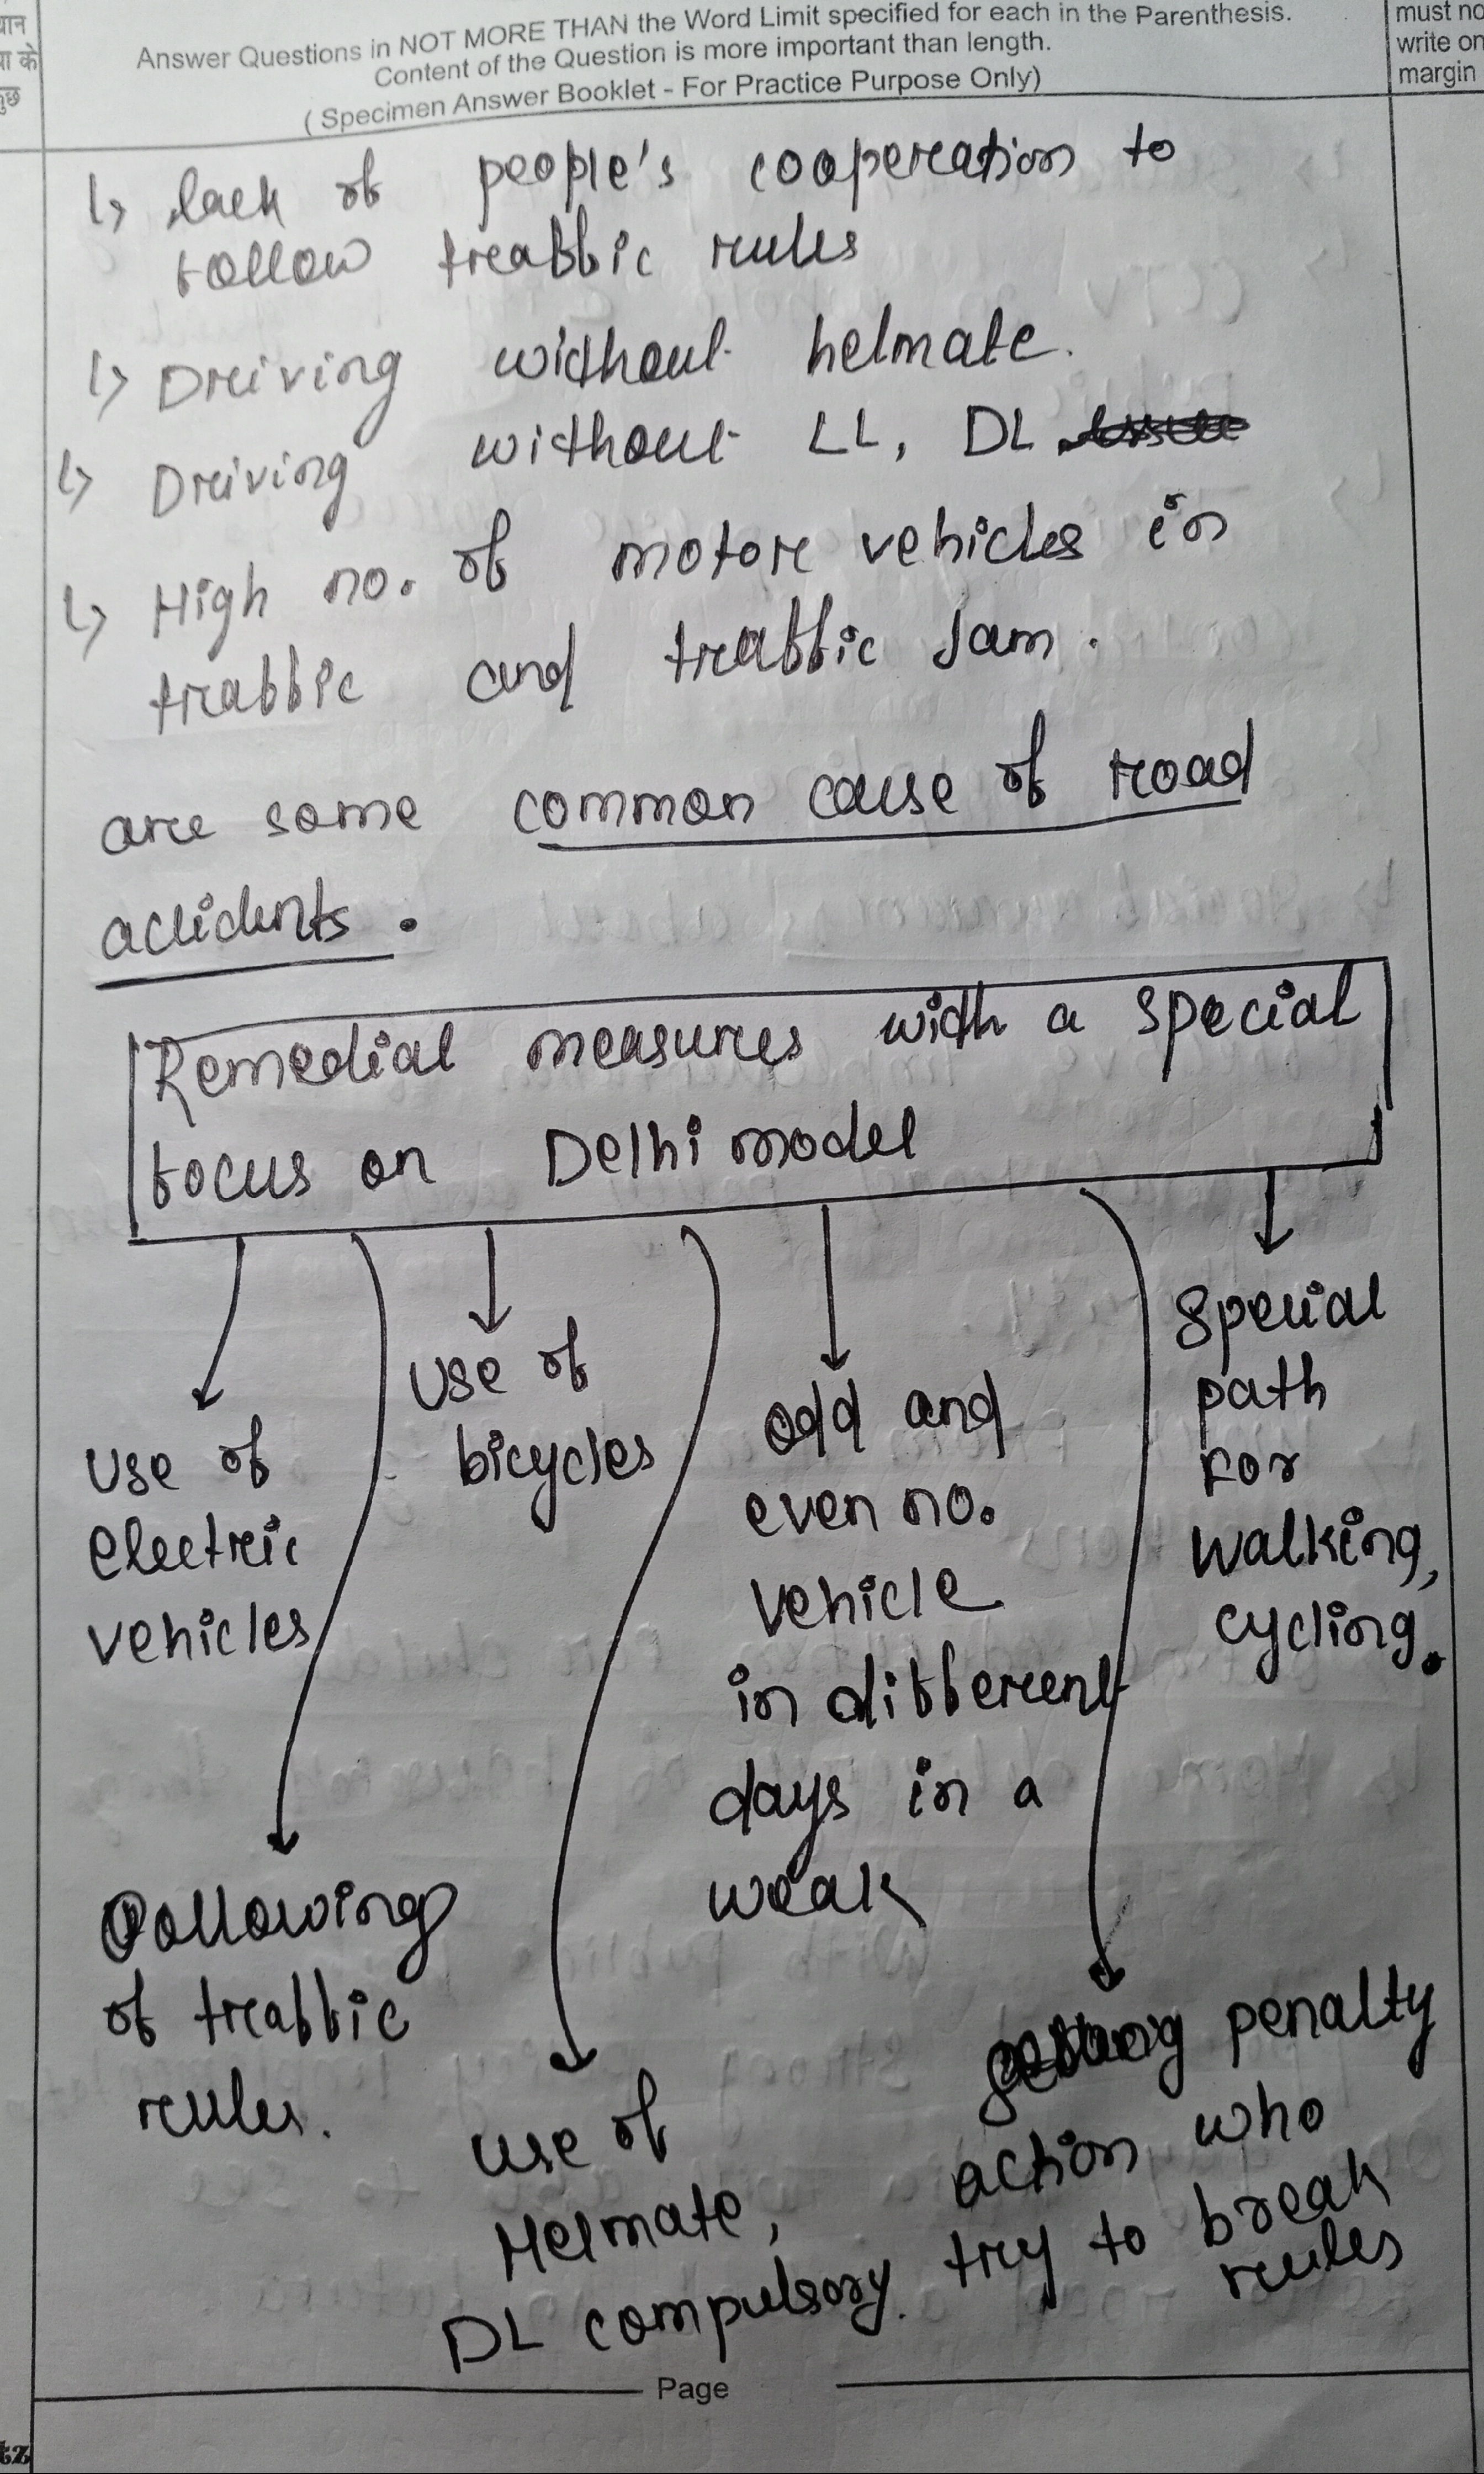 थान
ा के
कुछ
Answer Questions in NOT MORE THAN the Word Limit specified for each in the Parenthesis.
Content of the Question is more important than length.
( Specimen Answer Booklet - For Practice Purpose Only)
must no
write on
margin
↳ lack of people's cooperation to
follow traffic rules
↳ Driving without helmate.
↳ Driving without LL, DL
↳ High no. of motor vehicles in
traffic and traffic Jam.
are some common cause of road
accidents.
Remedial measures with a special
focus on Delhi model
Use of
electric
vehicles
Use of
bicycles
odd and
even no.
vehicle
in different
days in a
weak
Special
path
For
walking,
cycling.
Following
of traffic
rules.
use of
Helmate,
DL compulsory.
penalty
action who
try to break
rules
Page
tz